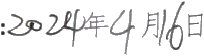 :2024年4月16日